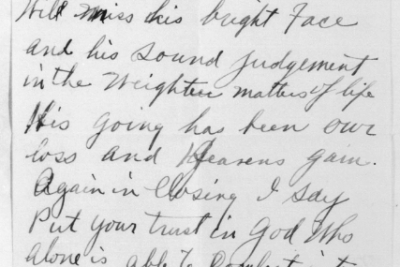 Will miss his bright Face
and his sound judgement
in the Weightier matters of life
His going has been our
loss and Heavens gain.
Again in Closing I say
Put your trust in God Who
alone is able to